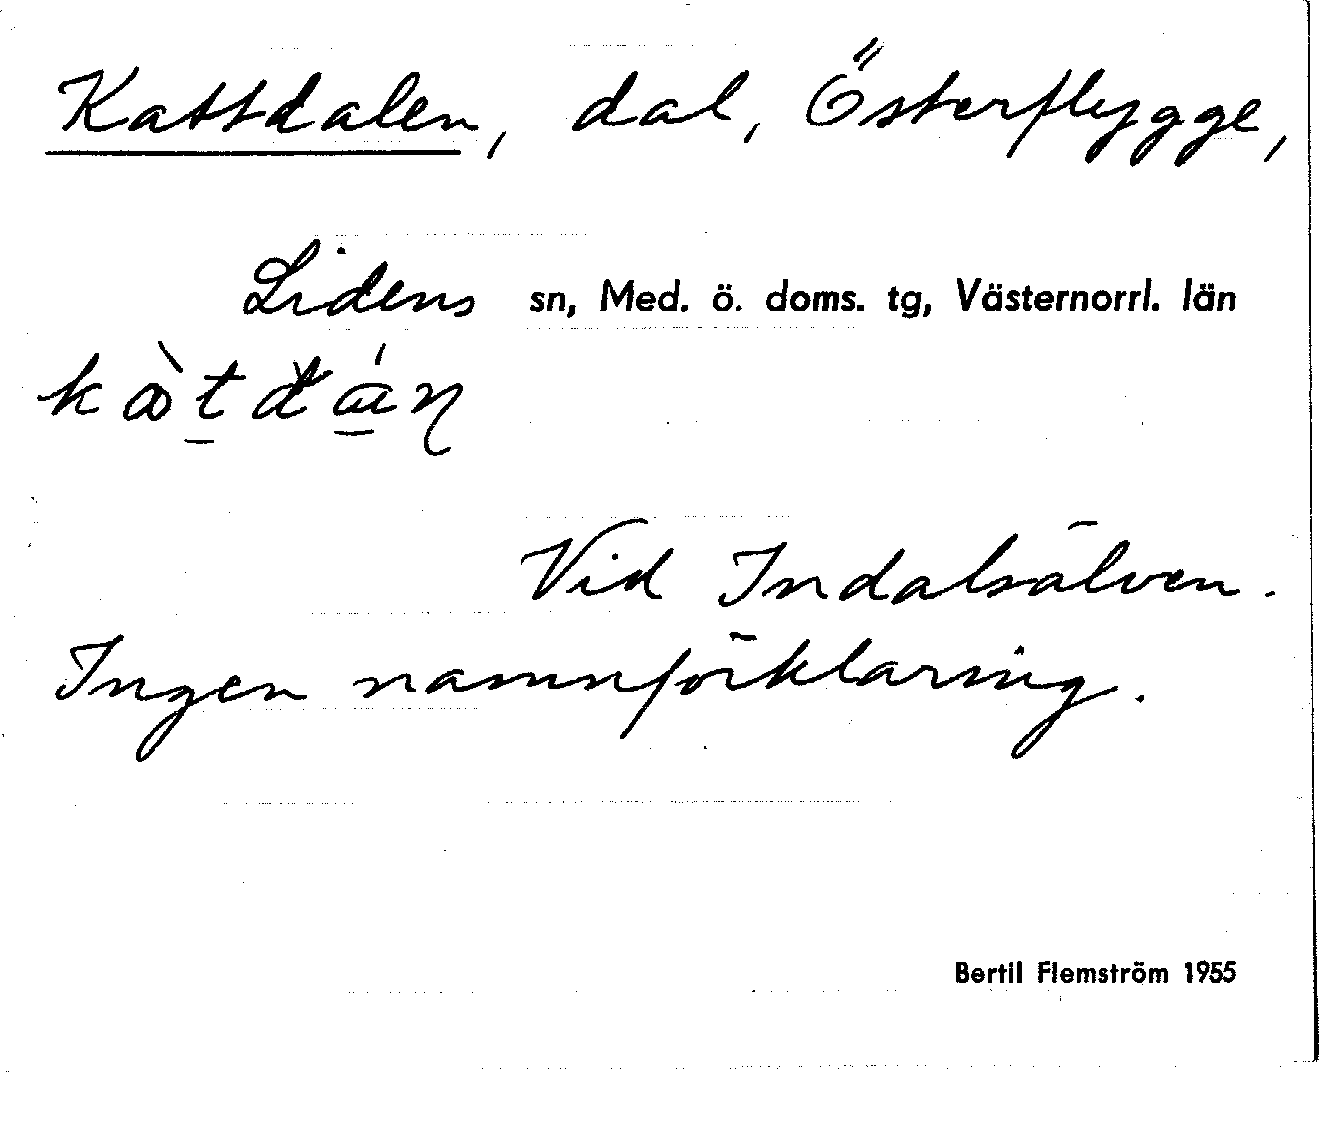 Kattdalen, dal, Österflygge,
Lidens sn, Med. ö. doms. tg, Västernorrl. län
Vid Indalsälven.
Ingen namnförklaring.
Bertil Flemström 1955